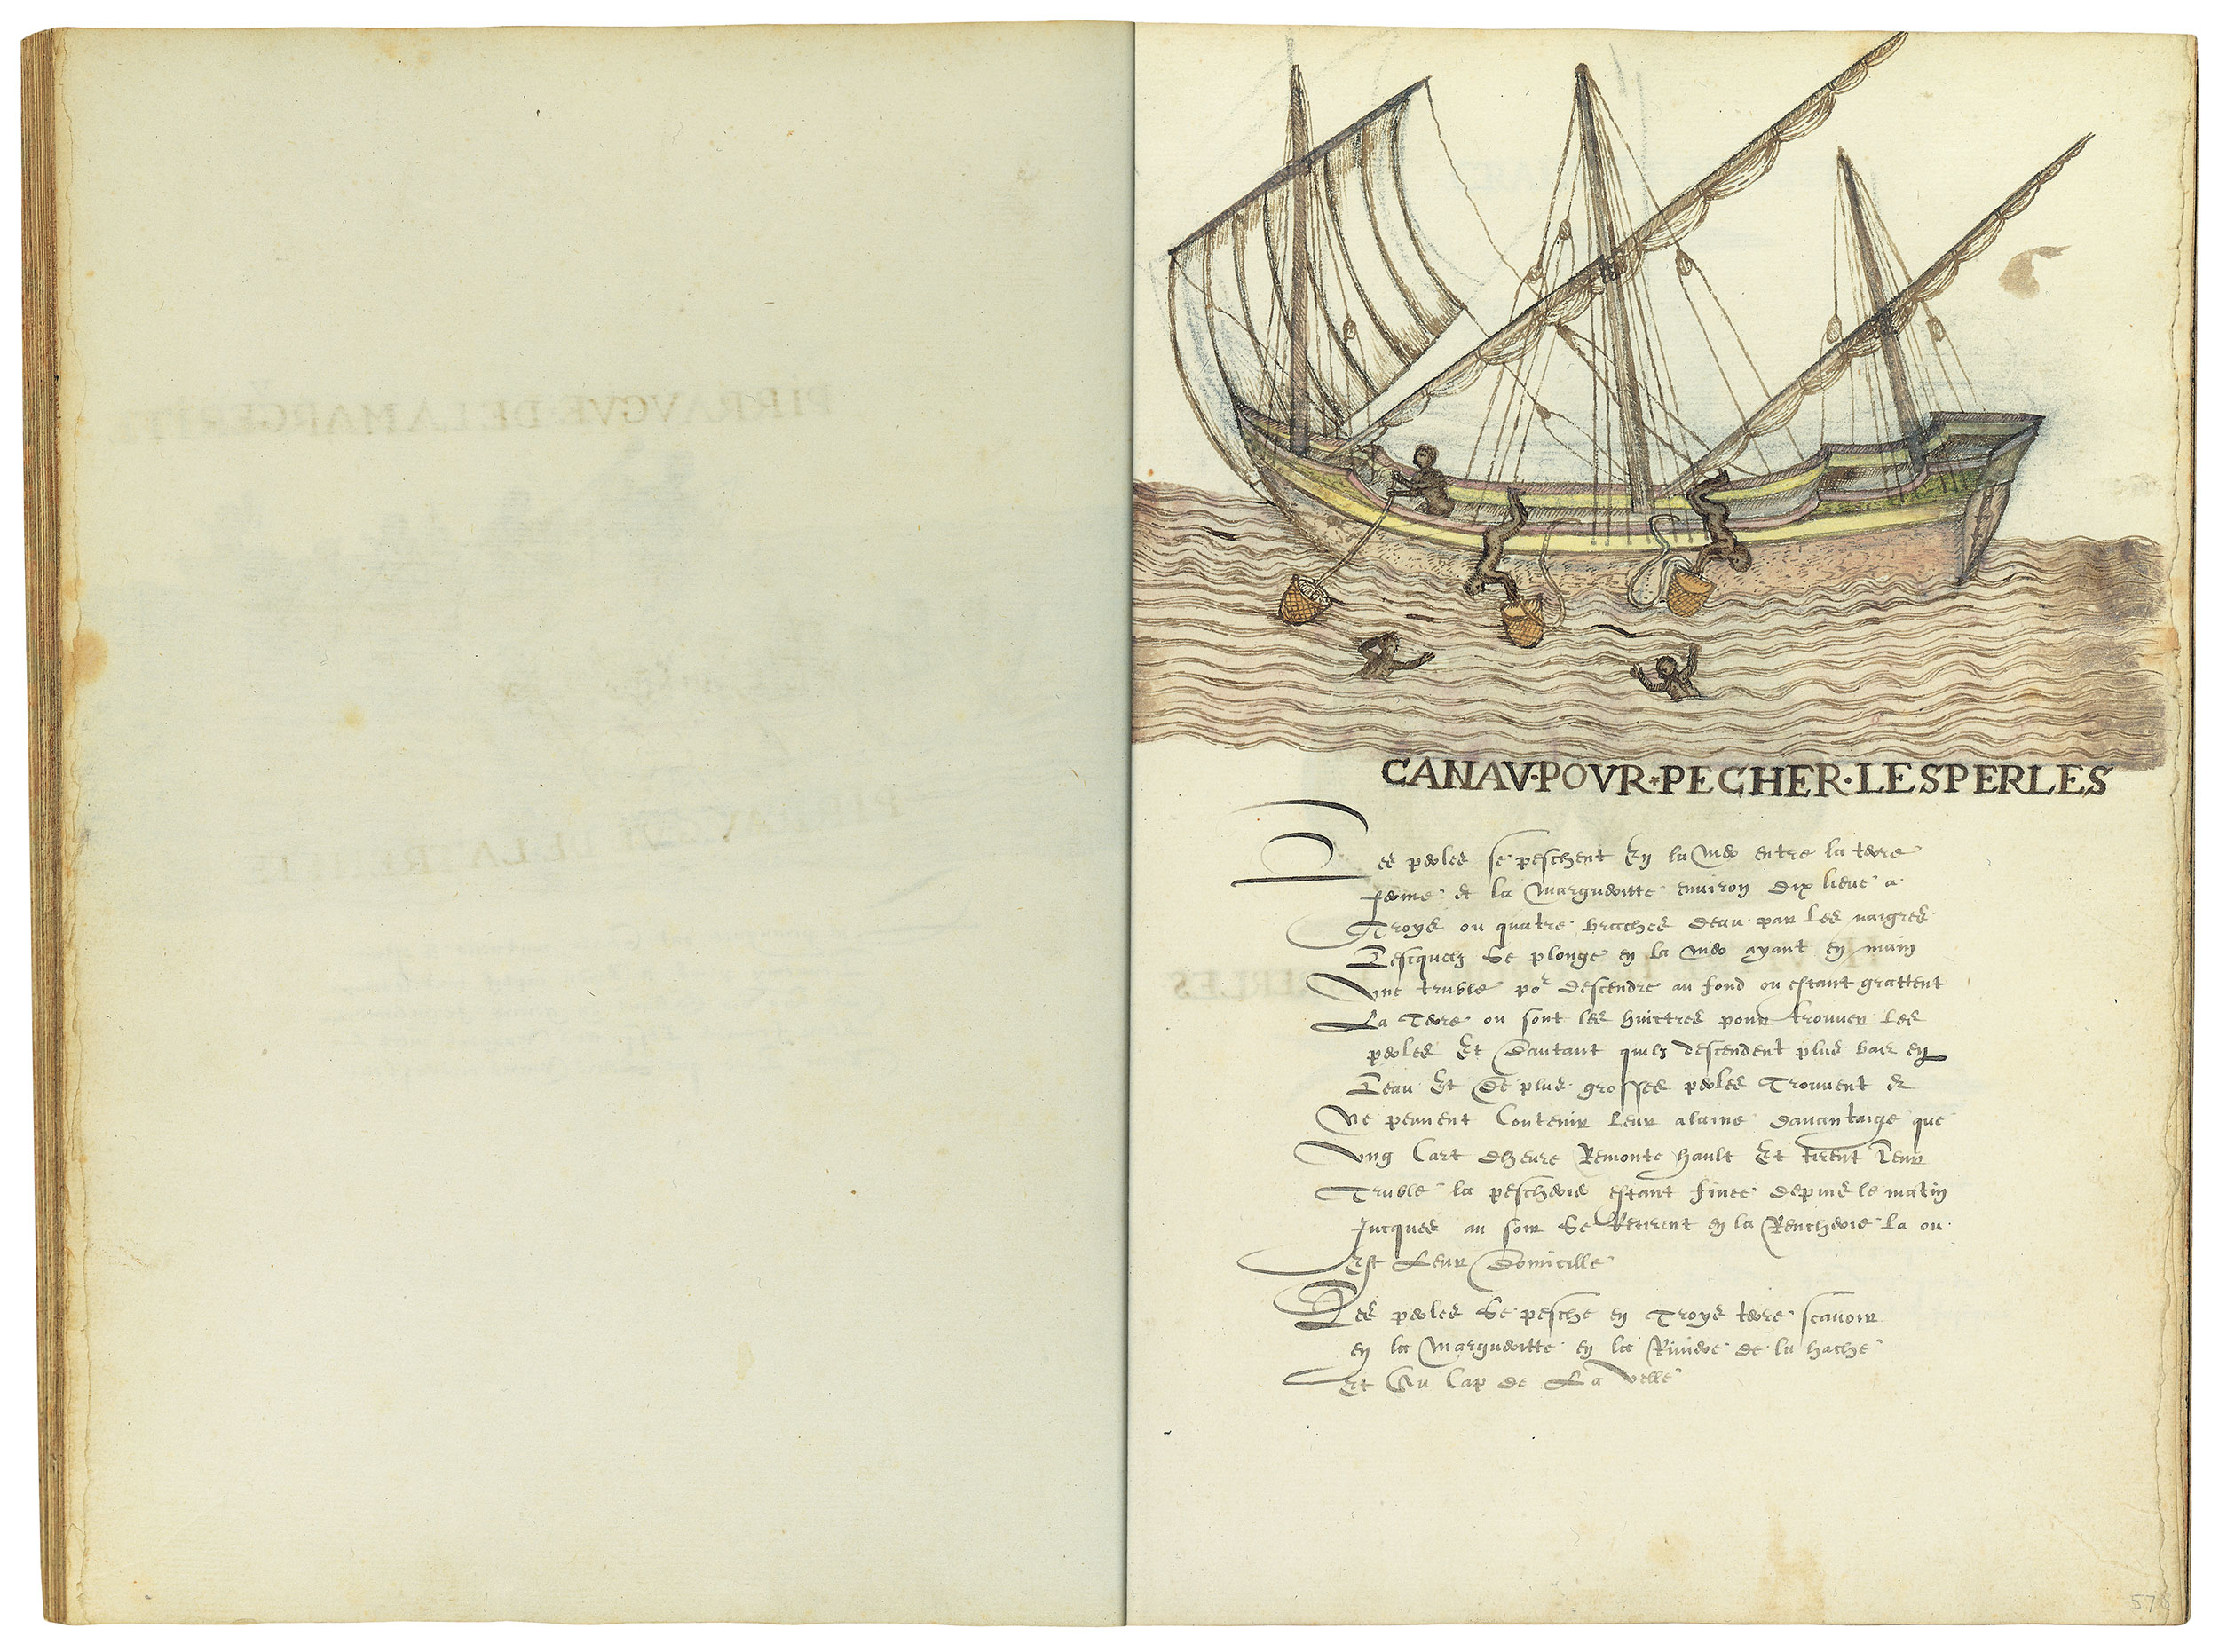 CANAV·POVR·PECHER·LESPERLES
Les perles se peschent En la Mer entre la terre
ferme et la Margueritte environ dix lieue a
Troys ou quatre braches deau par les naigres
Lesquelz se plonge en la Mer ayant en main
Une truble por descendre au fond ou estant grattent
La Terre ou sont les huictres pour trouver les
perles Et Dautant quilz descendent plus bas en
Leau Et De plus grosses perles Trouvent et
Ne peuvent Contenir leur alaine davantaige que
Ung Cart dheure Remonte hault Et tirent Leur
Truble la pescherie estant finee depuis le matin
Jucques au soir Se Retirent en la Rencherie la ou
Est Leur Domicille
Les perles Se pesche en Troys terre scavoir
en la Margueritte en la Riviere de la hache
Et Au Cap de La Velle
PIRRAVGVE·DE·LAMARGE
57